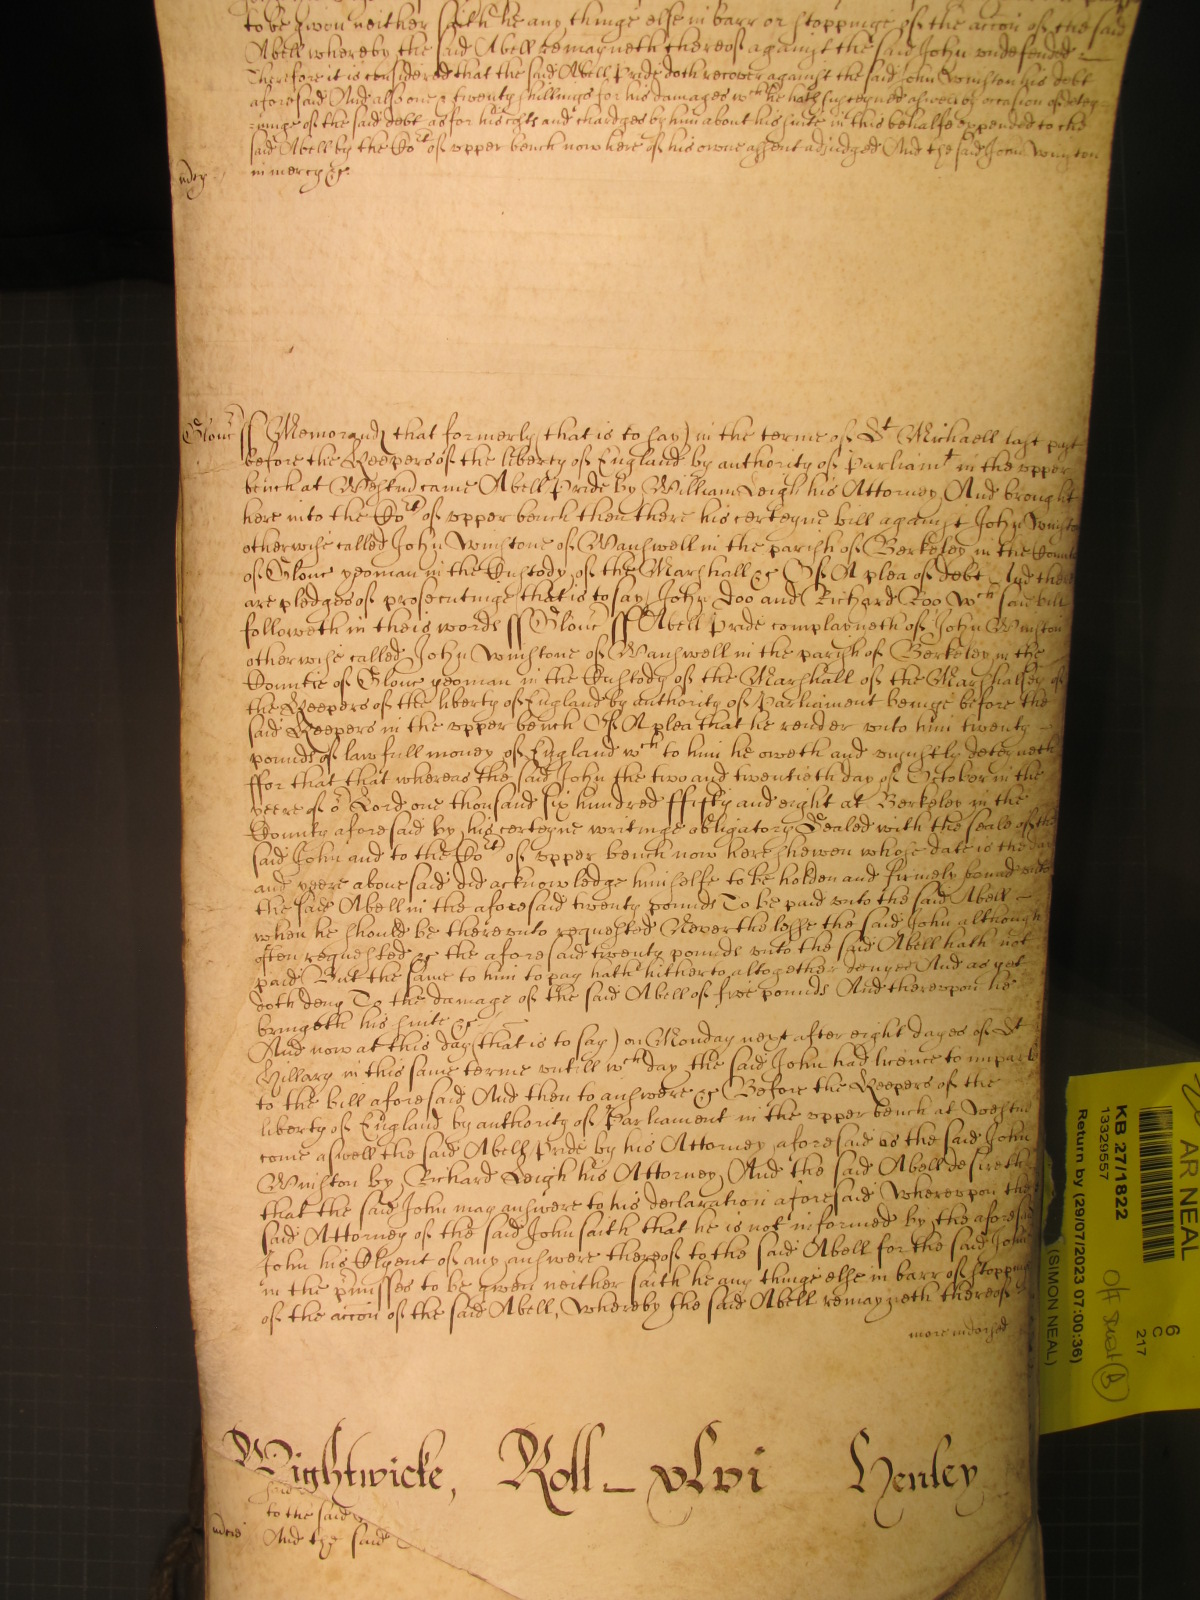 to be given neither saith he any thinge else in barr or stoppinge of the accon of the said
Abell whereby the said Abell remayneth thereof against the said John undefended
Therefore it is considered that the said Abell Pride doth recover against the said John Winston his debt
aforesaid And also one & twenty shillings for his damages wch he hath susteyned aswell by occasion of detey-
ninge of the said debt as for his costs and chardges by him about his suite in this behalfe expended to the
said Abell by the Cort of upper bench now here of his owne assent adjudged And the said John Winston
in mercy &c.
Glouc ss Memorand that formerly (that is to say) in the terme of St Michaell last past
before the Keepers of the liberty of England by authority of Parliamt in the upper
bench at Westm came Abell Pride by William Leigh his Attorney And brought
here into the Cort of upper bench then there his certeyne bill against John Winston
otherwise called John Winstone of Wanswell in the parish of Berkeley in the County
of Glouc yeoman in the Custody of the Marshall &c Of A plea of debt And there
are pledges of prosecutinge (that is to say) John Doo and Richard Roo Wch said bill
followeth in theis words ss Glouc ss Abell Pride complayneth of John Winston
otherwise called John Winstone of Wanswell in the parish of Berkeley in the
Countie of Glouc yeoman in the Custody of the Marshall of the Marshalsey of
the Keepers of the liberty of England by authority of Parliament beinge before the
said Keepers in the upper bench Of A plea that he render unto him twenty
pounds of lawfull money of England wch to him he oweth and uniustly deteyneth
ffor that that whereas the said John the two and twentieth day of October in the
yeere of or Lord one thousand six hundred ffifty and eight at Berkeley in the
County aforesaid by his certeyne writinge obligatory Sealed with the seale of the
said John and to the Cort of upper bench now here shewen whose date is the day
and yeere abovesaid did acknowledge himselfe to be holden and firmely bound unto
the said Abell in the aforesaid twenty pounds To be paid unto the said Abell
when he should be thereunto requested Neverthelesse the said John although
often requested &c the aforesaid twenty pounds unto the said Abell hath not
paid But the same to him to pay hath hitherto altogether denyed And as yet
doth deny To the damage of the said Abell of five pounds And thereupon he
bringeth his suite &c
And now at this day (that is to say) on Monday next after eight dayes of St
Hillary in this same terme untill wch day the said John had licence to imparle
to the bill aforesaid And then to answere &c Before the Keepers of the
liberty of England by authority of Parliament in the upper bench at Westm
come aswell the said Abell Pride by his Attorney aforesaid as the said John
Winston by Richard Leigh his Attorney And the said Abell desireth
that the said John may answere to his declaration aforesaid Whereupon the
said Attorney of the said John saith that he is not informed by the aforesaid
John his Clyent of any answere thereof to the said Abell for the said John
in the prmisses to be given neither saith he any thinge else in barr or stoppinge
of the accon of the said Abell, Whereby the said Abell remayneth thereof
more indorsed
Wightwicke, Roll xlvi Henley
said
to the said
And the said
AR NEAL
KB 27/1822
13329557
Return by (29/07/2023 07:00:36)
(SIMON NEAL)
6
C
217